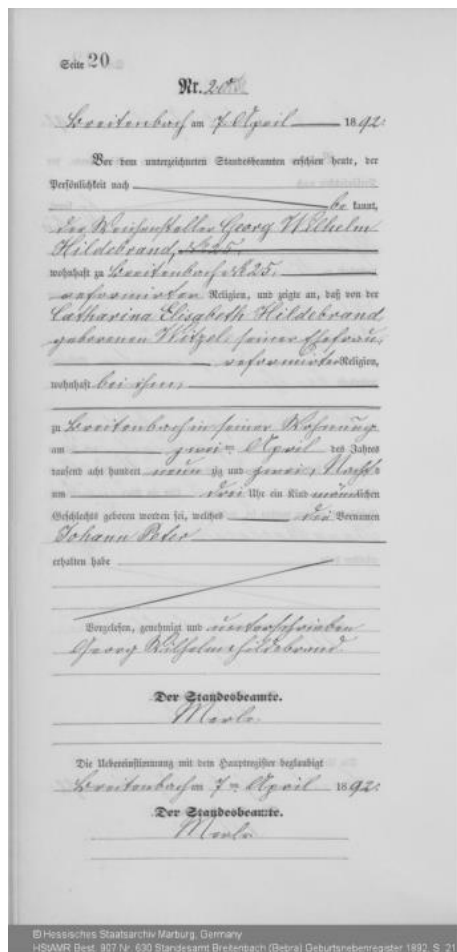 Seite 20
Nr. 20
Breitenbach am 7 April 1892.
Vor dem unterzeichneten Standesbeamten erschien heute, der
Persönlichkeit nach
be kannt,
der Weichensteller Georg Wilhelm
Hildebrand, № 25,
wohnhaft zu Breitenbach № 25,
reformirter Religion, und zeigte an, daß von der
Catharina Elisabeth Hildebrand
geborenen Witzel, seiner Ehefrau,
reformirter Religion,
wohnhaft bei ihm,
zu Breitenbach in seiner Wohnung
am zwei April des Jahres
tausend acht hundert neun zig und zwei, Nachts
um drei Uhr ein Kind männlichen
Geschlechts geboren worden sei, welches die Vornamen
Johann Peter
erhalten habe
Vorgelesen, genehmigt und unterschrieben
Georg Wilhelm Hildebrand
Der Standesbeamte.
Merle
Die Uebereinstimmung mit dem Hauptregister beglaubigt
Breitenbach am 7 April 1892.
Der Standesbeamte.
Merle
© Hessisches Staatsarchiv Marburg, Germany
HStAMR Best. 907 Nr. 630 Standesamt Breitenbach (Bebra) Geburtsnebenregister 1892, S. 21